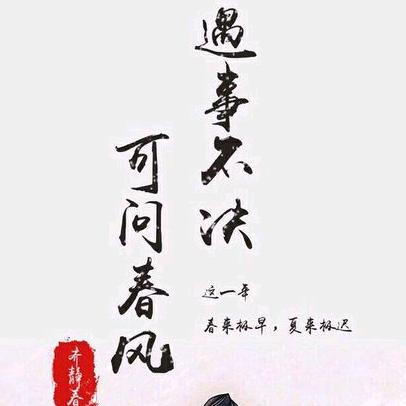 遇事不决
可问春风
这一年
春来极早，夏来极迟
齐静春